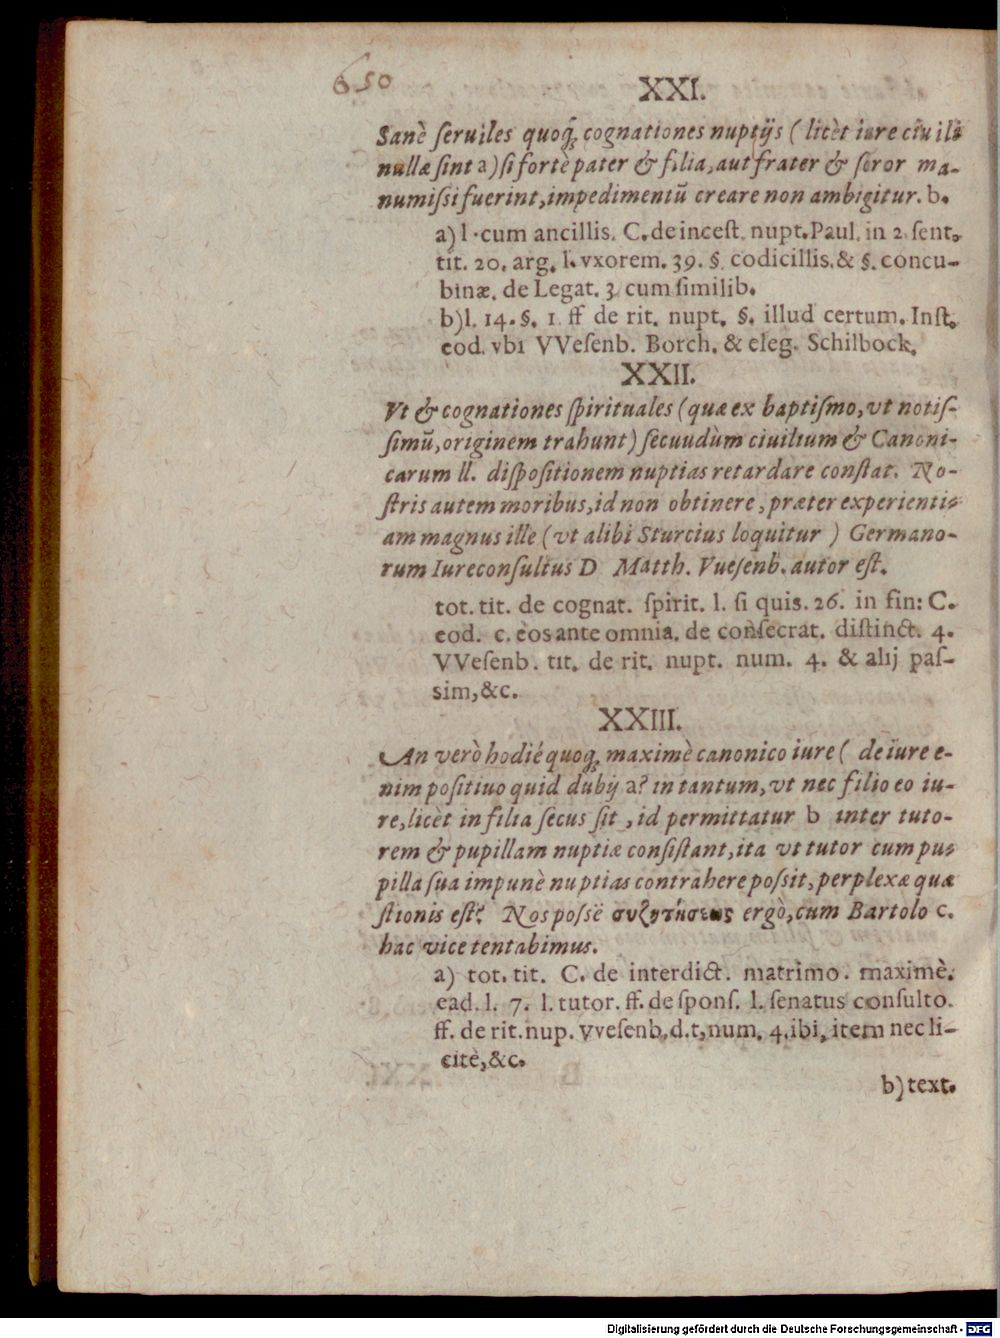 650
XXI.
Sanè ſeruiles quoq́; cognationes nuptijs (licèt iure ciuili
nullæ ſint a) ſi fortè pater & filia, aut frater & ſoror ma-
numiſsi fuerint, impedimentũ creare non ambigitur. b.
a) l. cum ancillis. C. de inceſt. nupt. Paul. in 2. ſent.
tit. 20. arg. l. vxorem. 39. §. codicillis. & §. concu-
binæ. de Legat. 3. cum ſimilib.
b) l. 14. §. 1. ff de rit. nupt. §. illud certum. Inſt.
eod. vbi VVeſenb. Borch. & eleg. Schilbock.
XXII.
Vt & cognationes ſpirituales (quæ ex baptiſmo, vt notiſ-
ſimũ, originem trahunt) ſecuudùm ciuilium & Canoni-
carum ll. diſpoſitionem nuptias retardare conſtat. No-
ſtris autem moribus, id non obtinere, præter experienti-
am magnus ille (vt alibi Sturcius loquitur) Germano-
rum Iureconſultus D Matth. Vueſenb. autor eſt.
tot. tit. de cognat. ſpirit. l. ſi quis. 26. in fin: C.
eod. c. eos ante omnia. de conſecrat. diſtinct. 4.
VVeſenb. tit. de rit. nupt. num. 4. & alij paſ-
sim, &c.
XXIII.
An verò hodié quoq; maximè canonico iure ( de iure e-
nim poſitiuo quid dubij a? in tantum, vt nec filio eo iu-
re, licèt in filia ſecus ſit, id permittatur b inter tuto-
rem & pupillam nuptiæ conſiſtant, ita vt tutor cum pu-
pilla ſua impunè nuptias contrahere poſsit, perplexæ quæ
ſtionis eſt? Nos poſsẽ συζητήσεως ergò, cum Bartolo c.
hac vice tentabimus.
a) tot. tit. C. de interdict. matrimo. maximè.
ead. l. 7. l. tutor. ff. de ſponſ. l. ſenatus conſulto.
ff. de rit. nup. vveſenb. d. t, num. 4. ibi, item nec li-
citè, &c.
b) text.
Digitalisierung gefördert durch die Deutsche Forschungsgemeinschaft - DFG